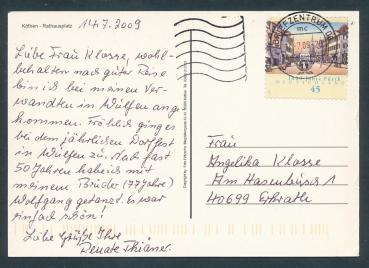 Köthen - Rathausplatz
14.7.2009
Liebe Frau Klasse, wohl-
behalten nach guter Reise
bin ich bei meinen Ver-
wandten in Wülfen ange-
kommen. Fröhlich ging es
bei dem jährlichen Dorffest
in Wülfen zu. Nach fast
50 Jahren habe ich mit
meinem Bruder (77 Jahre)
Wolfgang getanzt. Es war
einfach schön!
Liebe Grüße Ihre
Renate
BRIEFZENTRUM
mc
1000 Jahre Fürth
DEUTSCHLAND
45
Frau
Angelika Klasse
Am Hasenbusch 1
40699 Erkrath